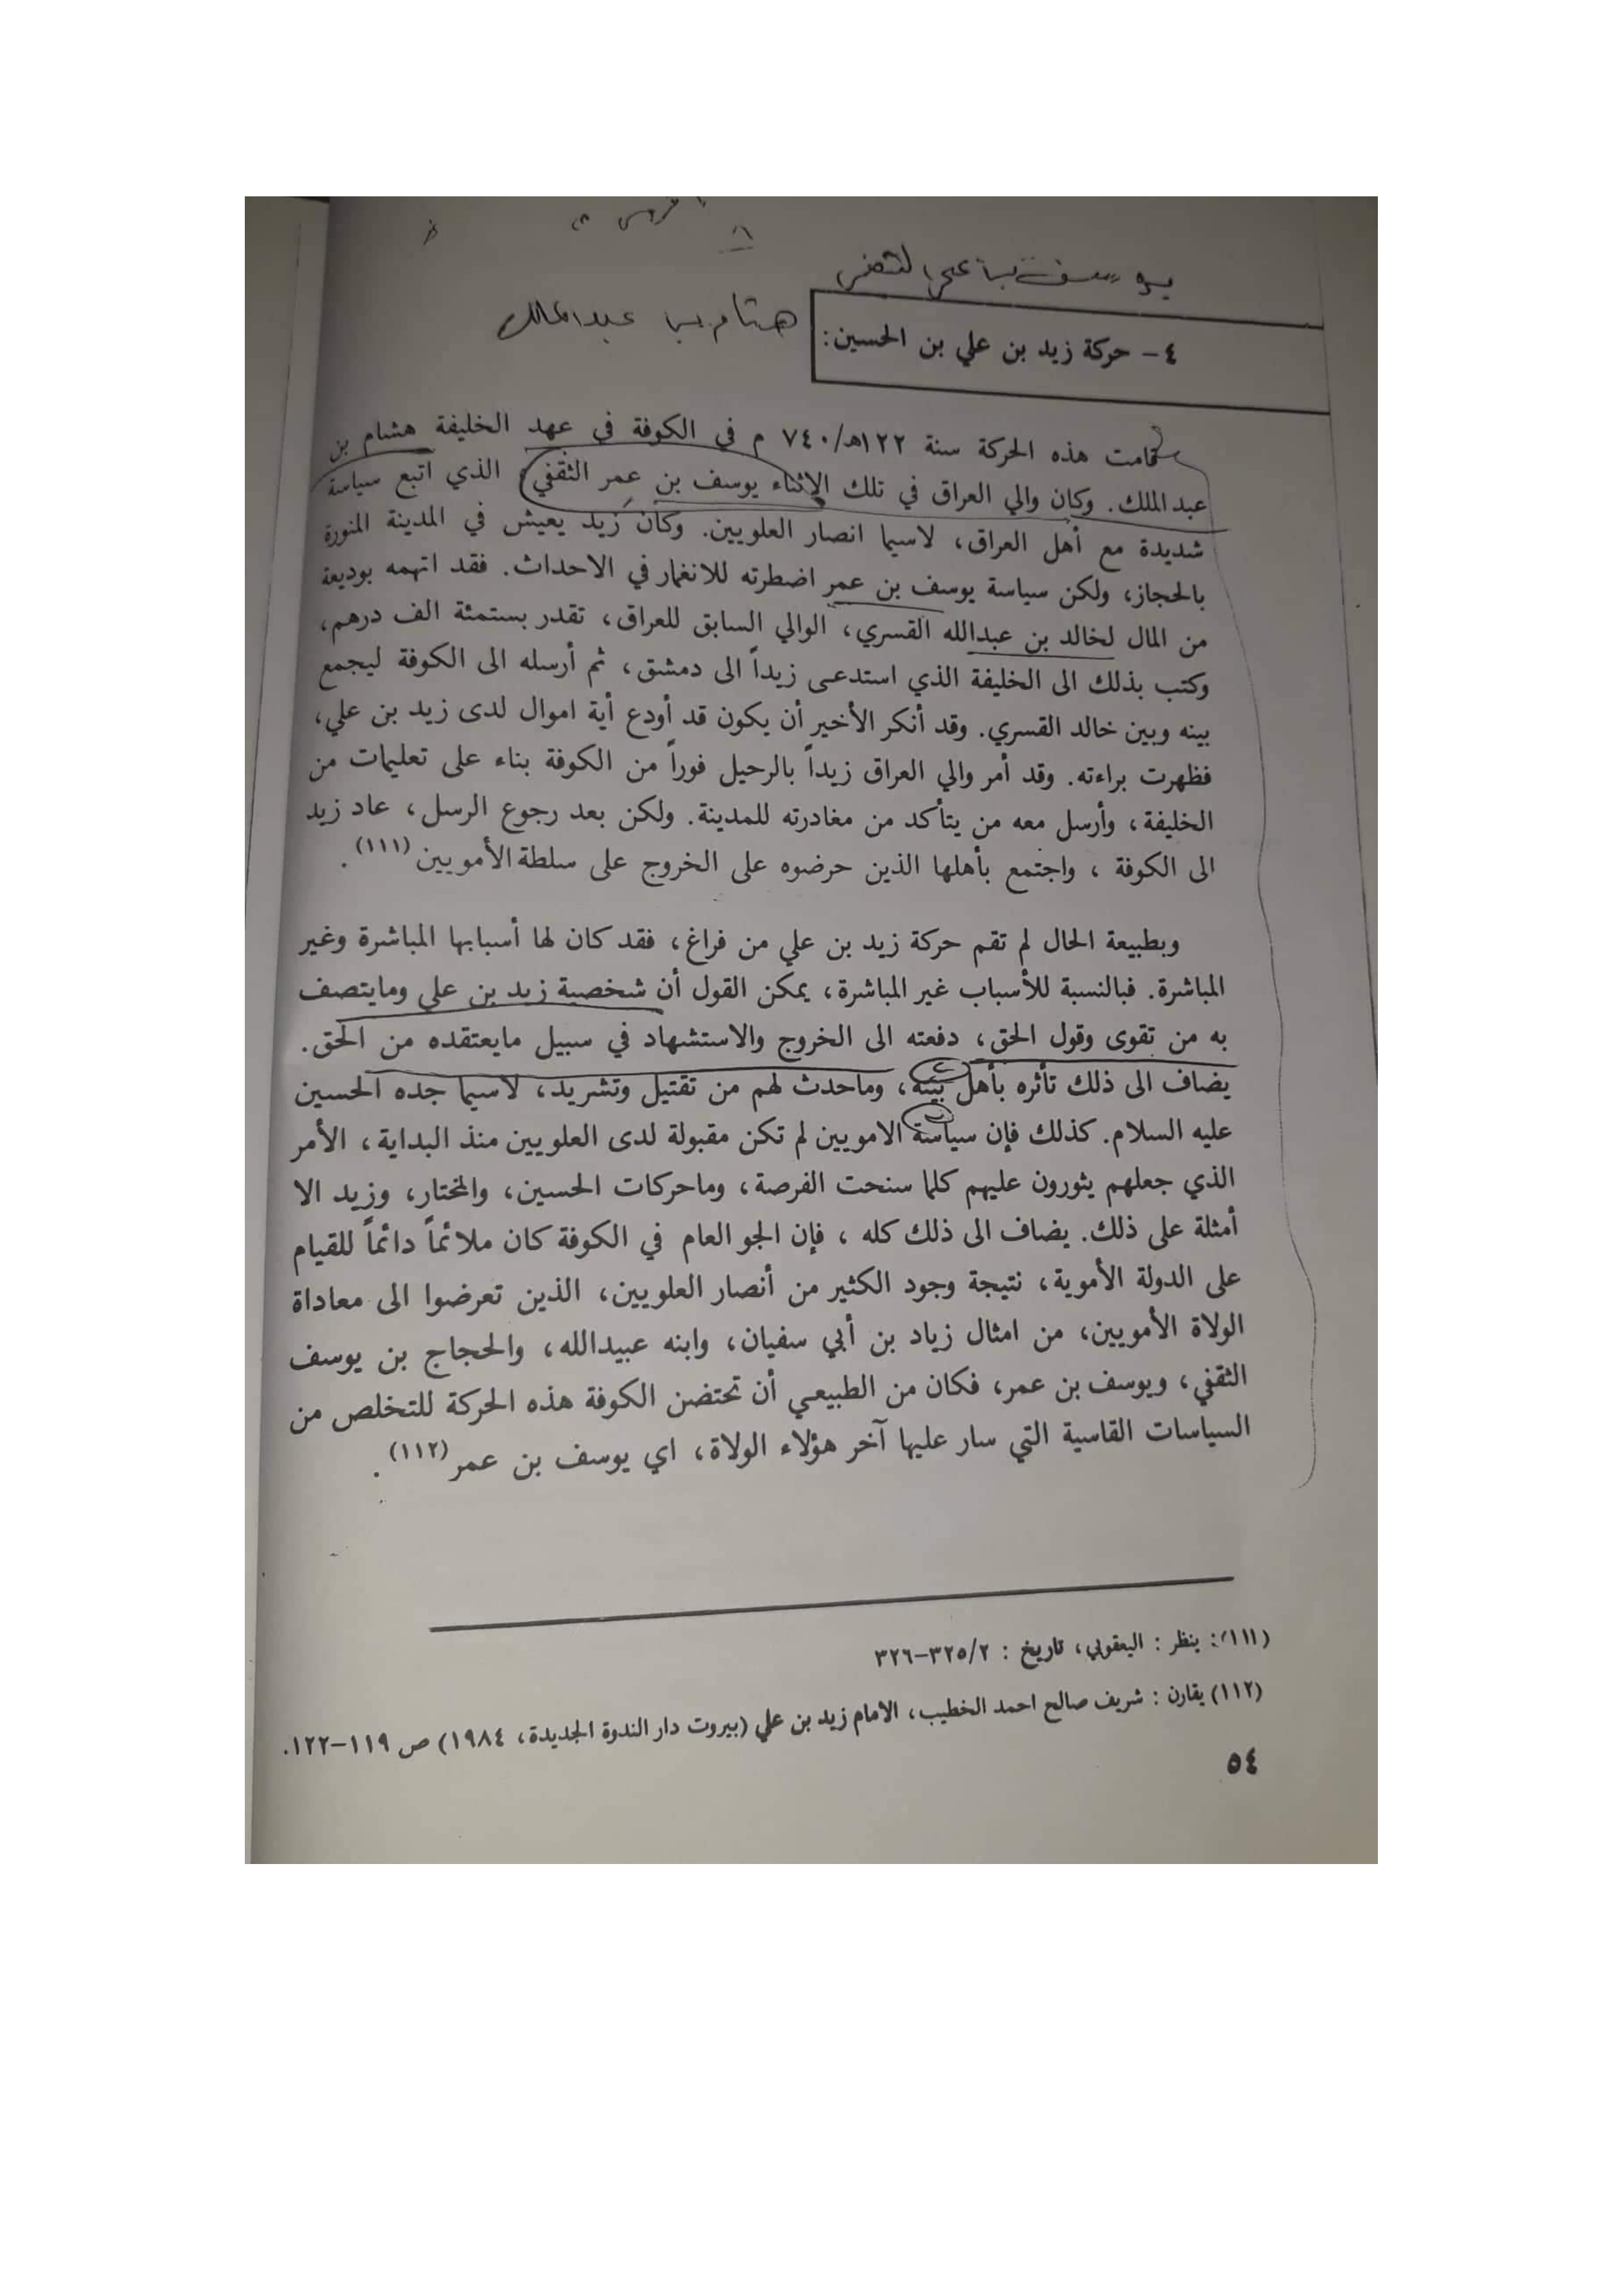 يوسف بن عمر الثقفي
هشام بن عبدالملك
٤ - حركة زيد بن علي بن الحسين:
قامت هذه الحركة سنة ١٢٢هـ/٧٤٠ م في الكوفة في عهد الخليفة هشام بن
عبدالملك. وكان والي العراق في تلك الاثناء يوسف بن عمر الثقفي، الذي اتبع سياسة
شديدة مع أهل العراق، لاسيما انصار العلويين. وكان زيد يعيش في المدينة المنورة
بالحجاز، ولكن سياسة يوسف بن عمر اضطرته للانغمار في الاحداث. فقد اتهمه بوديعة
من المال لخالد بن عبدالله القسري، الوالي السابق للعراق، تقدر بستمئة الف درهم،
وكتب بذلك الى الخليفة الذي استدعى زيداً الى دمشق، ثم أرسله الى الكوفة ليجمع
بينه وبين خالد القسري. وقد أنكر الأخير أن يكون قد أودع أية اموال لدى زيد بن علي،
فظهرت براءته. وقد أمر والي العراق زيداً بالرحيل فوراً من الكوفة بناء على تعليمات من
الخليفة، وأرسل معه من يتأكد من مغادرته للمدينة. ولكن بعد رجوع الرسل، عاد زيد
الى الكوفة ، واجتمع بأهلها الذين حرضوه على الخروج على سلطة الأمويين (١١١) .
وبطبيعة الحال لم تقم حركة زيد بن علي من فراغ، فقد كان لها أسبابها المباشرة وغير
المباشرة. فبالنسبة للأسباب غير المباشرة، يمكن القول أن شخصية زيد بن علي ومايتصف
به من تقوى وقول الحق، دفعته الى الخروج والاستشهاد في سبيل مايعتقده من الحق.
يضاف الى ذلك تأثره بأهل بيته، وماحدث لهم من تقتيل وتشريد، لاسيما جده الحسين
عليه السلام. كذلك فإن سياسة الامويين لم تكن مقبولة لدى العلويين منذ البداية، الأمر
الذي جعلهم يثورون عليهم كلما سنحت الفرصة، وماحركات الحسين، والمختار، وزيد الا
أمثلة على ذلك. يضاف الى ذلك كله ، فإن الجو العام في الكوفة كان ملائماً دائماً للقيام
على الدولة الأموية، نتيجة وجود الكثير من أنصار العلويين، الذين تعرضوا الى معاداة
الولاة الأمويين، من امثال زياد بن أبي سفيان، وابنه عبيدالله، والحجاج بن يوسف
الثقفي، ويوسف بن عمر، فكان من الطبيعي أن تحتضن الكوفة هذه الحركة للتخلص من
السياسات القاسية التي سار عليها آخر هؤلاء الولاة، اي يوسف بن عمر (١١٢) .
(١١١): ينظر : اليعقوبي، تاريخ : ٣٢٥/٢-٣٢٦
(١١٢) يقارن : شريف صالح احمد الخطيب، الامام زيد بن علي (بيروت دار الندوة الجديدة، ١٩٨٤) ص ١١٩-١٢٢.
٥٤